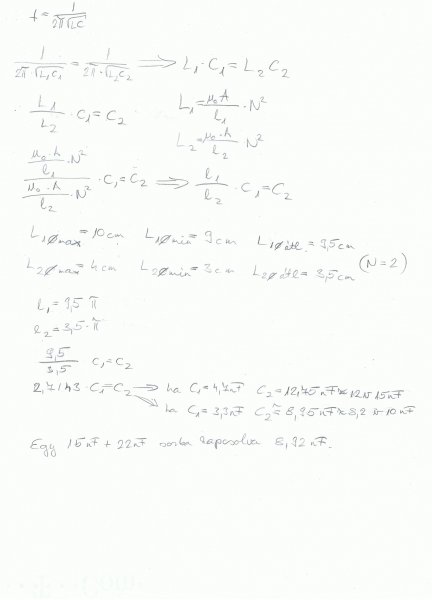 f = 1/(2π√LC)
1/(2π·√L₁C₁) = 1/(2π·√L₂C₂) ⟹ L₁·C₁ = L₂C₂
L₁/L₂ · C₁ = C₂
L₁ = μ₀A/l₁ · N²
L₂ = μ₀·A/l₂ · N²
(μ₀·A/l₁ · N²)/(μ₀·A/l₂ · N²) · C₁ = C₂ ⟹ l₁/l₂ · C₁ = C₂
L₁ømax = 10cm L₁ømin = 9cm L₁øátl. = 9,5cm
L₂ømax = 4cm L₂ømin = 3cm L₂øátl = 3,5cm (N=2)
l₁ = 9,5·π
l₂ = 3,5·π
9,5/3,5 C₁ = C₂
2,7143·C₁ = C₂ → ha C₁ = 4,7nF C₂ = 12,75nF ≈ 12 v 15nF
ha C₁ = 3,3nF C₂ = 8,95nF ≈ 8,2 v 10nF
Egy 15nF + 22nF sorba kapcsolva 8,92nF.